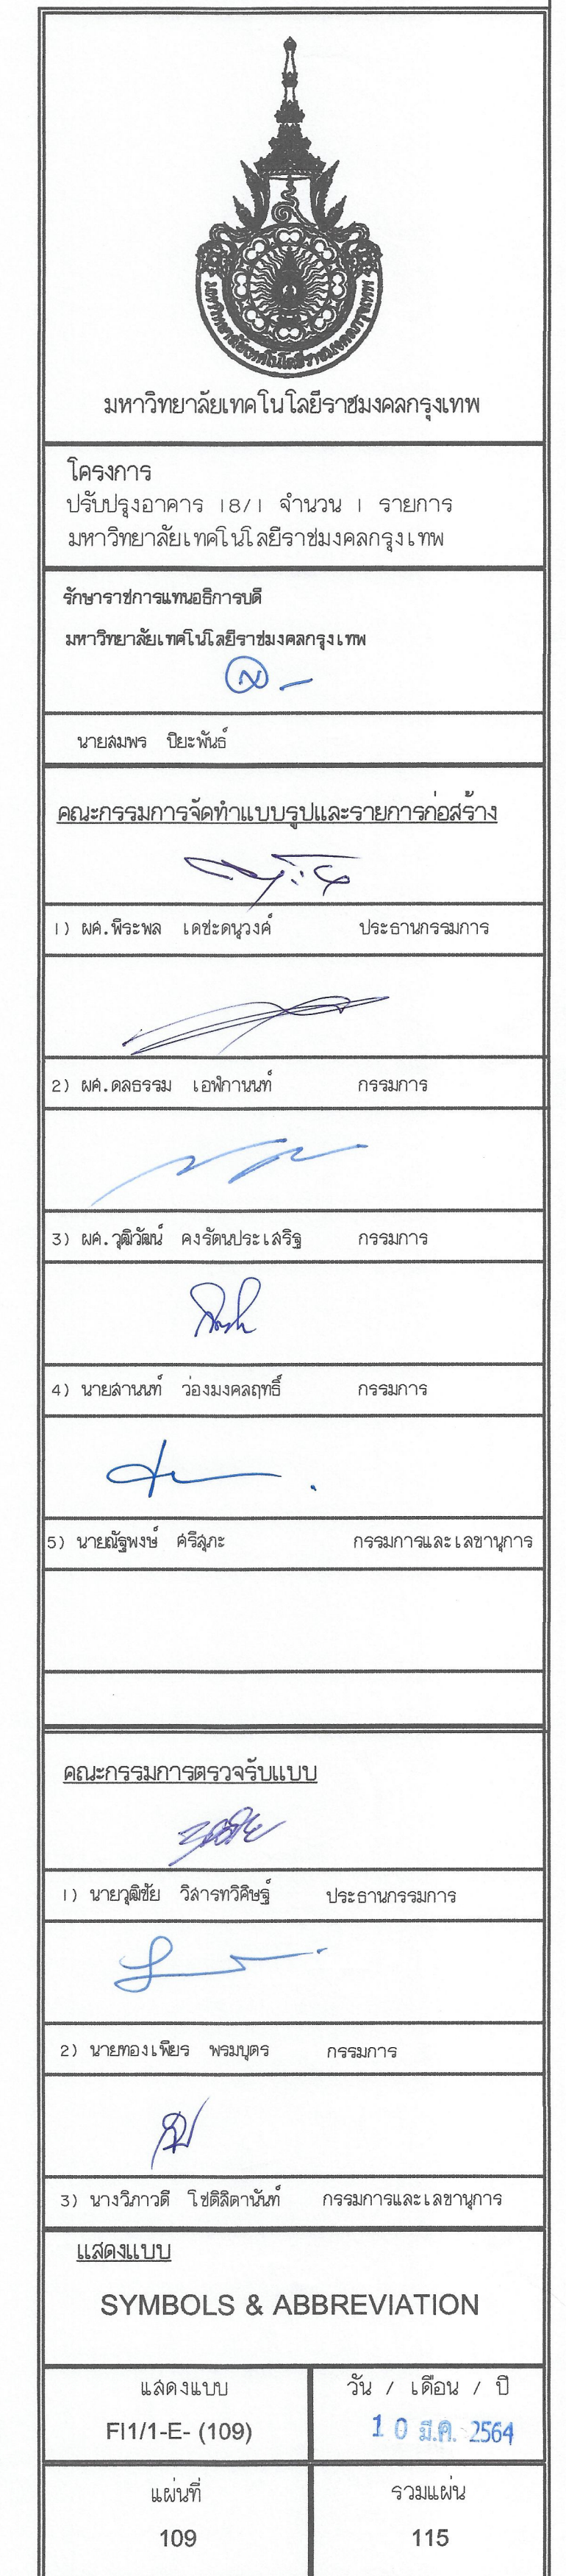 มหาวิทยาลัยเทคโนโลยีราชมงคลกรุงเทพ
มหาวิทยาลัยเทคโนโลยีราชมงคลกรุงเทพ
โครงการ
ปรับปรุงอาคาร 18/1 จำนวน 1 รายการ
มหาวิทยาลัยเทคโนโลยีราชมงคลกรุงเทพ
รักษาราชการแทนอธิการบดี
มหาวิทยาลัยเทคโนโลยีราชมงคลกรุงเทพ
นายสมพร ปิยะพันธ์
คณะกรรมการจัดทำแบบรูปและรายการก่อสร้าง
1) ผศ.พีระพล เดชะดนุวงศ์ ประธานกรรมการ
2) ผศ.ดลธรรม เอฬกานนท์ กรรมการ
3) ผศ.วุฒิวัฒน์ คงรัตนประเสริฐ กรรมการ
4) นายสานนท์ ว่องมงคลฤทธิ์ กรรมการ
5) นายณัฐพงษ์ ศรีสุภะ กรรมการและเลขานุการ
คณะกรรมการตรวจรับแบบ
1) นายวุฒิชัย วิสารทวิศิษฐ์ ประธานกรรมการ
2) นายทองเพียร พรมบุตร กรรมการ
3) นางวิภาวดี โชติลิตานันท์ กรรมการและเลขานุการ
แสดงแบบ
SYMBOLS & ABBREVIATION
แสดงแบบ วัน / เดือน / ปี
FI1/1-E- (109) 10 มี.ค. 2564
แผ่นที่ รวมแผ่น
109 115